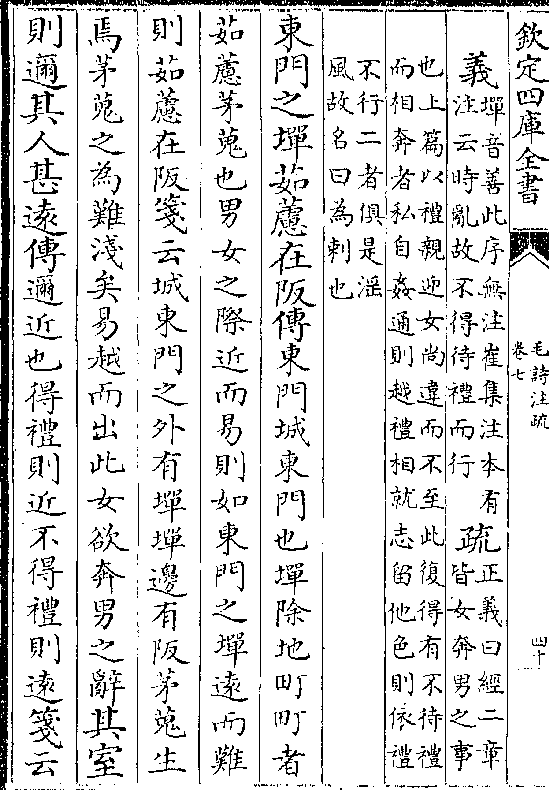 欽定四庫全書
毛詩注疏
卷七
四十
義
墠音善此序無注崔集注本有
注云時亂故不得待禮而行
疏
正義曰經二章
皆女奔男之事
也上篇以禮親迎女尚違而不至此復得有不待禮
而相奔者私自姦通則越禮相就志留他色則依禮
不行二者俱是淫
風故名曰為刺也
東門之墠茹藘在阪傳東門城東門也墠除地町町者
茹藘茅蒐也男女之際近而易則如東門之墠遠而難
則茹藘在阪箋云城東門之外有墠墠邊有阪茅蒐生
焉茅蒐之為難淺矣易越而出此女欲奔男之辭其室
則邇其人甚遠傳邇近也得禮則近不得禮則遠箋云